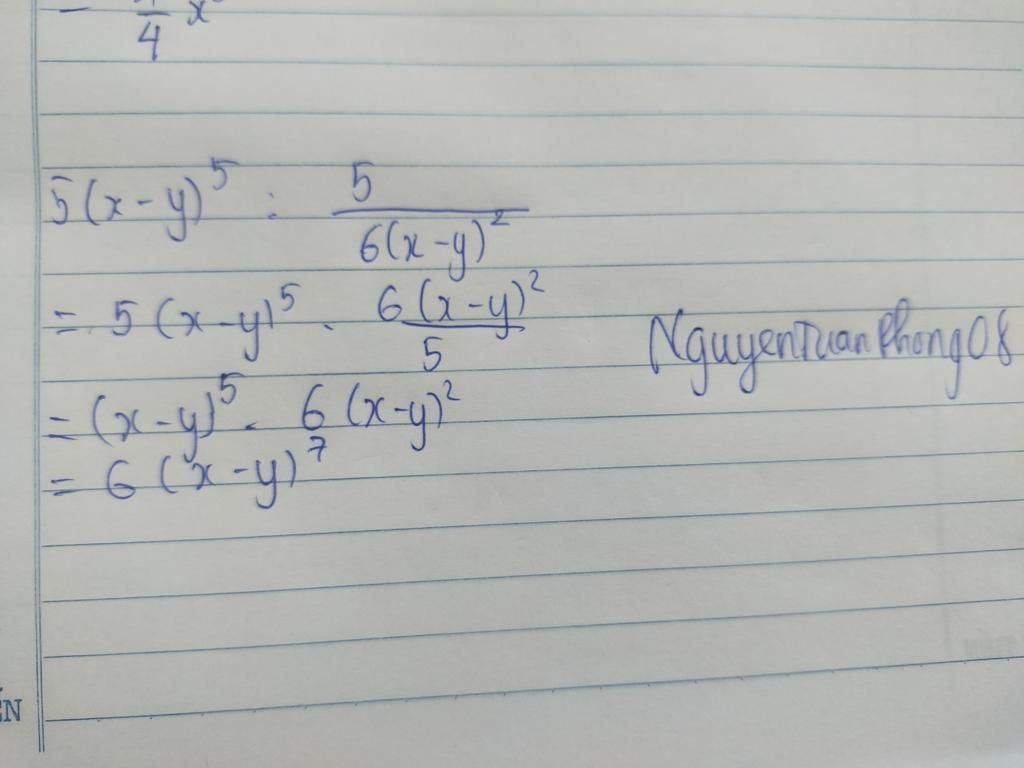 4 x
5(x-y)^5 : 5/(6(x-y)^2)
= 5(x-y)^5 . 6(x-y)^2/5
NguyenTuanPhong08
= (x-y)^5 . 6(x-y)^2
= 6(x-y)^7